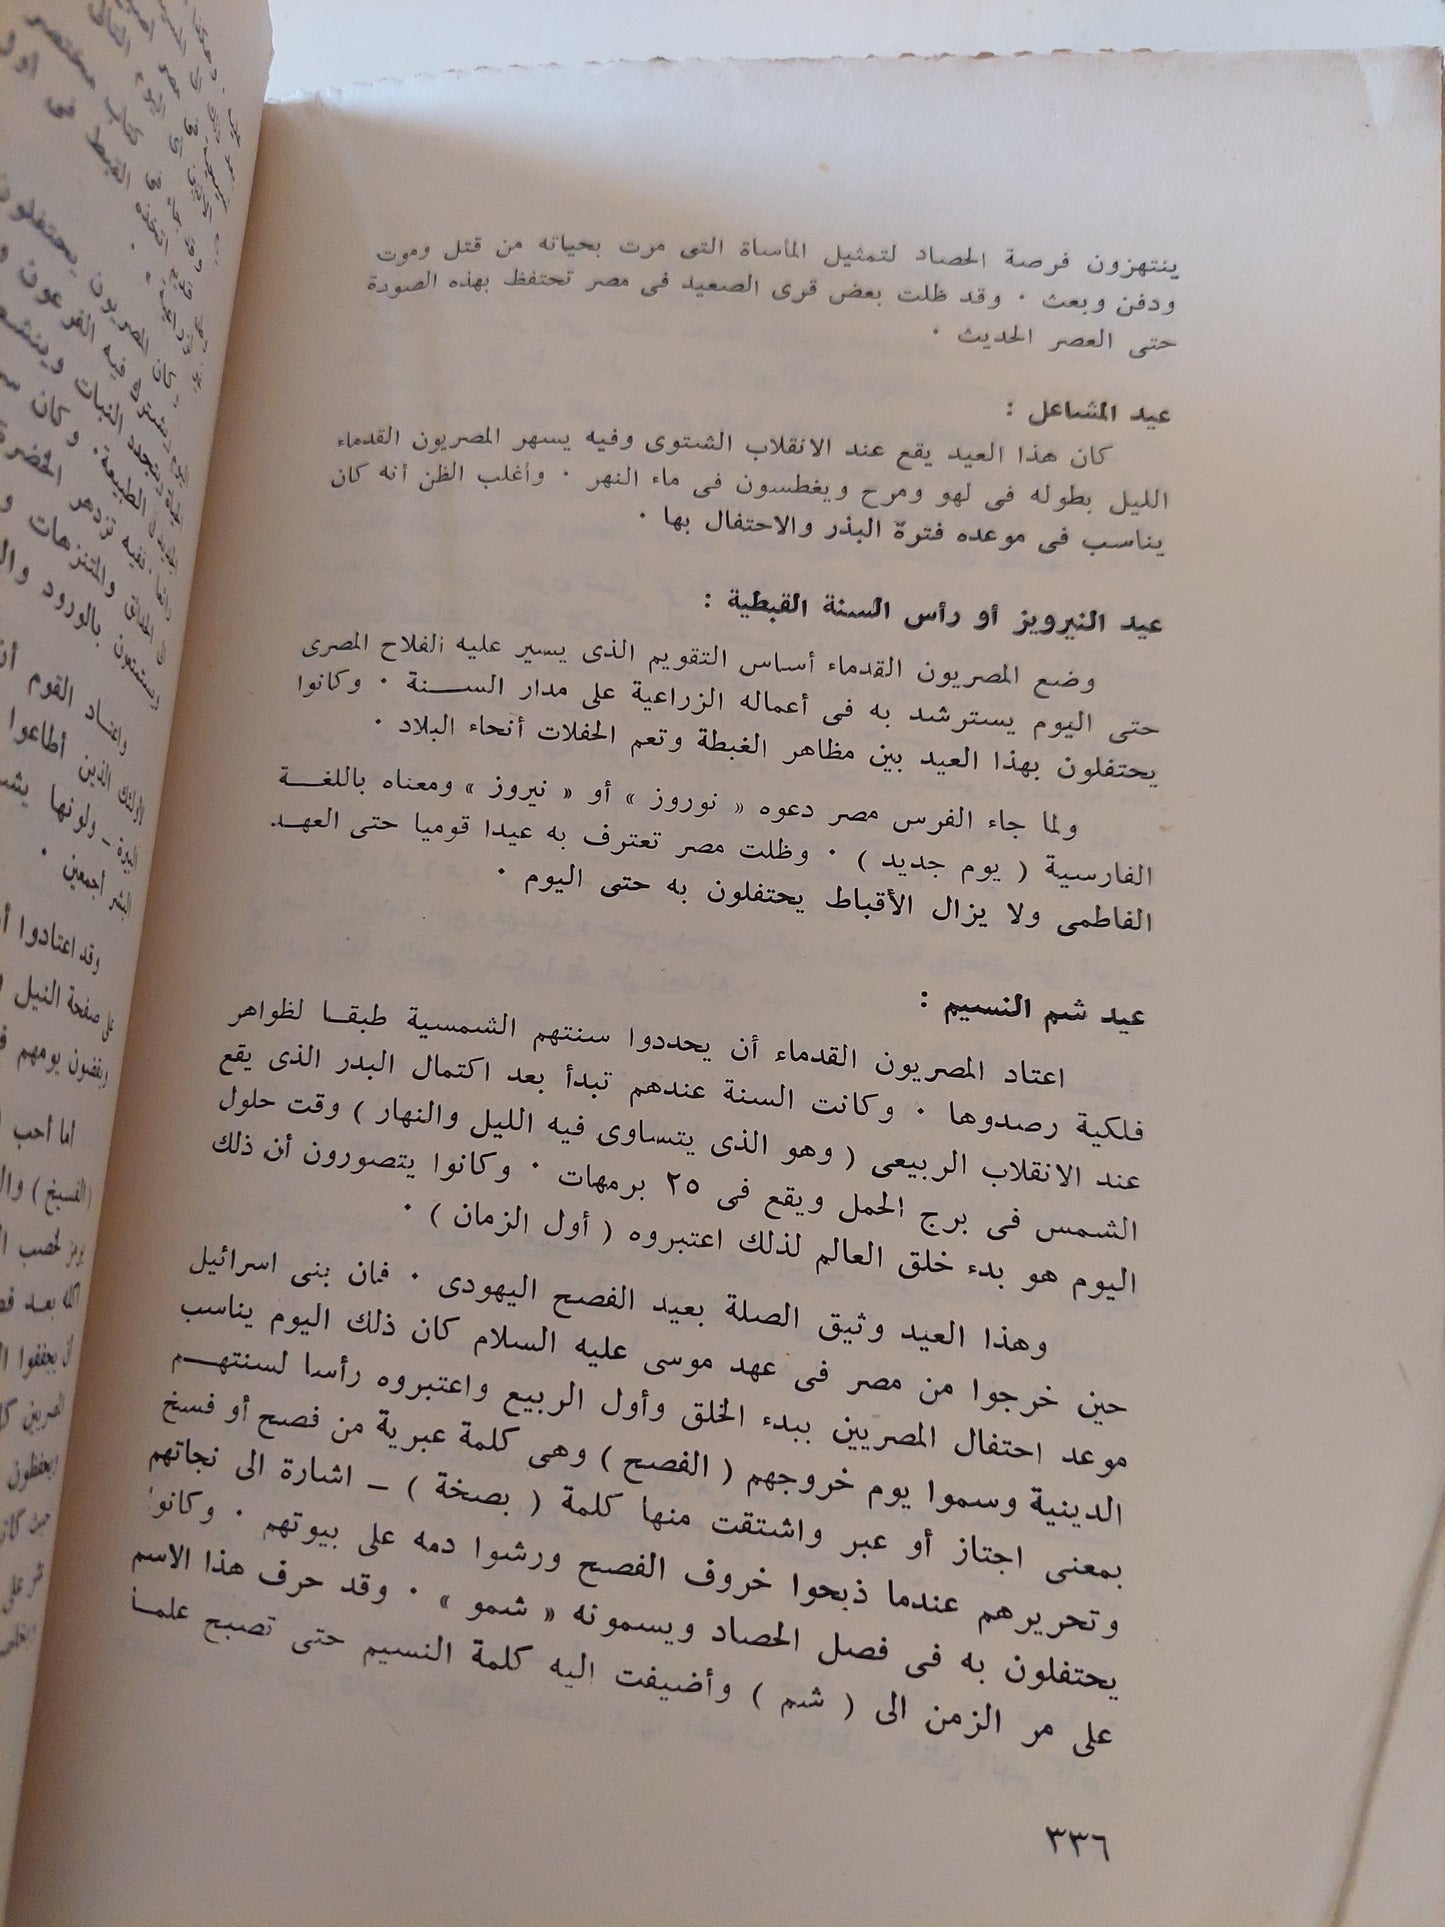 ينتهزون فرصة الحصاد لتمثيل المأساة التى مرت بحياته من قتل وموت
ودفن وبعث . وقد ظلت بعض قرى الصعيد فى مصر تحتفظ بهذه الصورة
حتى العصر الحديث .
عيد المشاعل :
كان هذا العيد يقع عند الانقلاب الشتوى وفيه يسهر المصريون القدماء
الليل بطوله فى لهو ومرح ويغطسون فى ماء النهر . وأغلب الظن أنه كان
يناسب فى موعده فترة البذر والاحتفال بها .
عيد النيرويز أو رأس السنة القبطية :
وضع المصريون القدماء أساس التقويم الذى يسير عليه الفلاح المصرى
حتى اليوم يسترشد به فى أعماله الزراعية على مدار الســنة . وكانوا
يحتفلون بهذا العيد بين مظاهر الغبطة وتعم الحفلات أنحاء البلاد .
ولما جاء الفرس مصر دعوه « نوروز » أو « نيروز » ومعناه باللغــة
الفارسية ( يوم جديد ) . وظلت مصر تعترف به عيدا قوميا حتى العهــد
الفاطمى ولا يزال الأقباط يحتفلون به حتى اليوم .
عيد شم النسيم :
اعتاد المصريون القدماء أن يحددوا سنتهم الشمسية طبقــا لظواهر
فلكية رصدوها . وكانت السنة عندهم تبدأ بعد اكتمال البدر الذى يقع
عند الانقلاب الربيعى ( وهو الذى يتساوى فيه الليل والنهار ) وقت حلول
الشمس فى برج الحمل ويقع فى ٢٥ برمهات . وكانوا يتصورون أن ذلك
اليوم هو بدء خلق العالم لذلك اعتبروه ( أول الزمان ) .
وهذا العيد وثيق الصلة بعيد الفصح اليهودى . فان بنى اسرائيل
حين خرجوا من مصر فى عهد موسى عليه السلام كان ذلك اليوم يناسب
موعد احتفال المصريين ببدء الخلق وأول الربيع واعتبروه رأسا لسنتهــم
الدينية وسموا يوم خروجهم ( الفصح ) وهى كلمة عبرية من فصح أو فسخ
بمعنى اجتاز أو عبر واشتقت منها كلمة ( بصخة ) – اشارة الى نجاتهم
وتحريرهم عندما ذبحوا خروف الفصح ورشوا دمه على بيوتهم . وكانوا
يحتفلون به فى فصل الحصاد ويسمونه « شمو » . وقد حرف هذا الاسم
على مر الزمن الى ( شم ) وأضيفت اليه كلمة النسيم حتى تصبح علمــا
٣٣٦